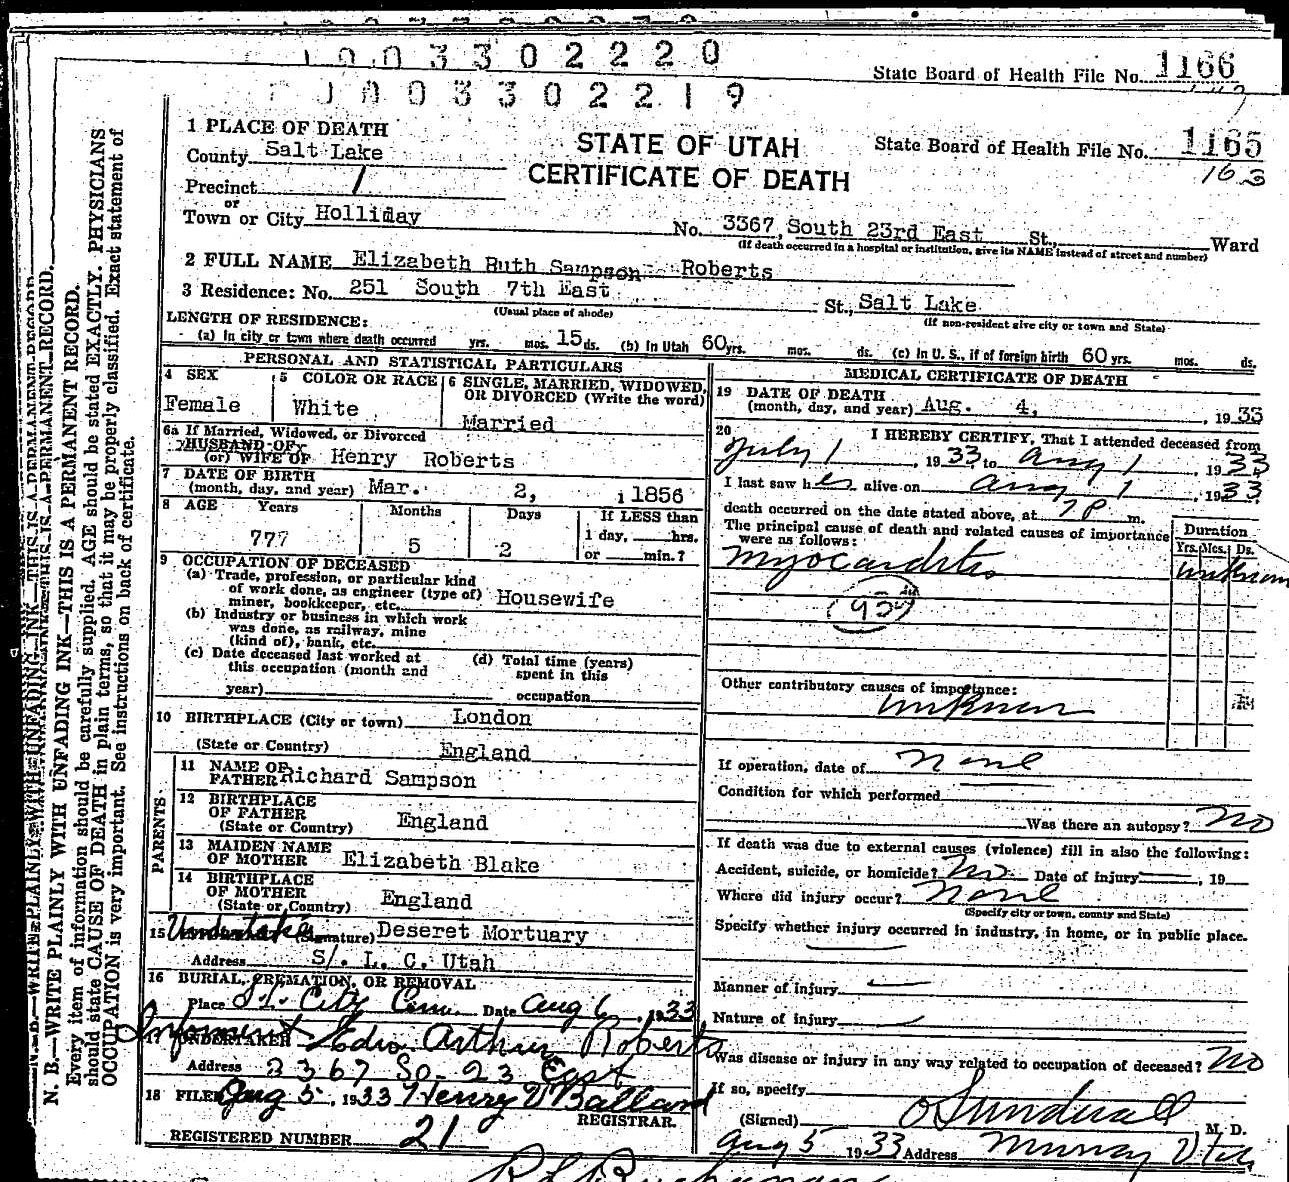 0 0 3 3 0 2 2 2 0
State Board of Health File No. 1166
0 0 3 3 0 2 2 1 9
1 PLACE OF DEATH
STATE OF UTAH
CERTIFICATE OF DEATH
State Board of Health File No. 1165
163
County Salt Lake
Precinct 1
or
Town or City Holliday
No. 3367, South 23rd East St., Ward
(If death occurred in a hospital or institution, give its NAME instead of street and number)
2 FULL NAME Elizabeth Ruth Sampson Roberts
3 Residence: No. 251 South 7th East St., Salt Lake
(Usual place of abode)
(If non-resident give city or town and State)
LENGTH OF RESIDENCE:
(a) In city or town where death occurred yrs. mos. 15 ds. (b) In Utah 60 yrs. mos. ds. (c) In U. S., if of foreign birth 60 yrs. mos. ds.
PERSONAL AND STATISTICAL PARTICULARS
4 SEX
Female
5 COLOR OR RACE
White
6 SINGLE, MARRIED, WIDOWED, OR DIVORCED (Write the word)
Married
6a If Married, Widowed, or Divorced
HUSBAND OF
(or) WIFE OF Henry Roberts
7 DATE OF BIRTH
(month, day, and year) Mar. 2, 1856
8 AGE Years Months Days If LESS than
777 5 2 1 day, hrs.
or min.?
9 OCCUPATION OF DECEASED
(a) Trade, profession, or particular kind
of work done, as engineer (type of)
miner, bookkeeper, etc. Housewife
(b) Industry or business in which work
was done, as railway, mine
(kind of), bank, etc.
(c) Date deceased last worked at
this occupation (month and
year)
(d) Total time (years)
spent in this
occupation
10 BIRTHPLACE (City or town) London
(State or Country) England
PARENTS
11 NAME OF
FATHER Richard Sampson
12 BIRTHPLACE
OF FATHER
(State or Country) England
13 MAIDEN NAME
OF MOTHER Elizabeth Blake
14 BIRTHPLACE
OF MOTHER
(State or Country) England
15 Undertaker (Signature) Deseret Mortuary
Address S/. L. C. Utah
16 BURIAL, CREMATION, OR REMOVAL
Place S.L. City Cem. Date Aug 6, 1933
Informent Edw Arthur Roberts
17 UNDERTAKER
Address 3367 So. 23 East
18 FILED Aug 5, 1933 Henry Ballard
REGISTRAR.
REGISTERED NUMBER 21
MEDICAL CERTIFICATE OF DEATH
19 DATE OF DEATH
(month, day, and year) Aug. 4, 1933
20 I HEREBY CERTIFY, That I attended deceased from
July 1, 1933 to Aug 1, 1933
I last saw her alive on Aug 1, 1933.
death occurred on the date stated above, at 7 P m.
The principal cause of death and related causes of importance
were as follows:
Duration
Yrs. Mos. Ds.
Myocarditis unknown
Other contributory causes of importance:
unknown
If operation, date of None
Condition for which performed
Was there an autopsy? No
If death was due to external causes (violence) fill in also the following:
Accident, suicide, or homicide? No Date of injury , 19
Where did injury occur? None
(Specify city or town, county and State)
Specify whether injury occurred in industry, in home, or in public place.
Manner of injury
Nature of injury
Was disease or injury in any way related to occupation of deceased? No
If so, specify
(Signed) O Sundwall M. D.
Aug 5 1933 Address Murray Utah
N. B.—WRITE PLAINLY WITH UNFADING INK—THIS IS A PERMANENT RECORD.
Every item of information should be carefully supplied. AGE should be stated EXACTLY. PHYSICIANS
should state CAUSE OF DEATH in plain terms, so that it may be properly classified. Exact statement of
OCCUPATION is very important. See instructions on back of certificate.